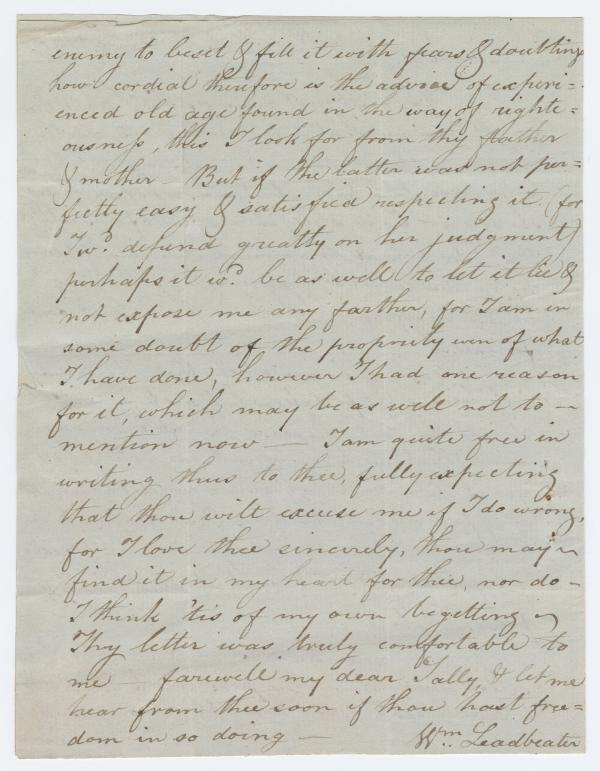 enemy to beset & fill it with fears & doubtings
how cordial therefore is the advice of experi=
enced old age found in the way of righte=
ousness, this I look for from thy father
& mother - But if the latter was not per=
fectly easy & satisfied respecting it (for
I wd. depend greatly on her judgment)
perhaps it wd. be as well to let it lie &
not expose me any farther, for I am in
some doubt of the propriety even of what
I have done, however I had one reason
for it, which may be as well not to -
mention now — I am quite free in
writing thus to thee, fully expecting
that thou wilt excuse me if I do wrong,
for I love thee sincerely, thou may
find it in my heart for thee, nor do -
I think 'tis of my own begetting -
Thy letter was truly comfortable to
me - farewell my dear Sally & let me
hear from thee soon if thou hast free=
dom in so doing -
Wm. Leadbeater